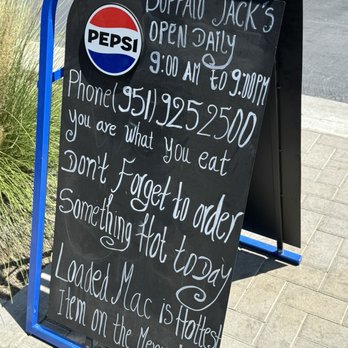 BUFFALO JACK'S
PEPSI
OPEN DAILY
9:00 AM to 9:00PM
Phone (951) 925 2500
you are what you eat
Don't Forget to order
Something Hot today
Loaded Mac is Hottest
Item on the Menu